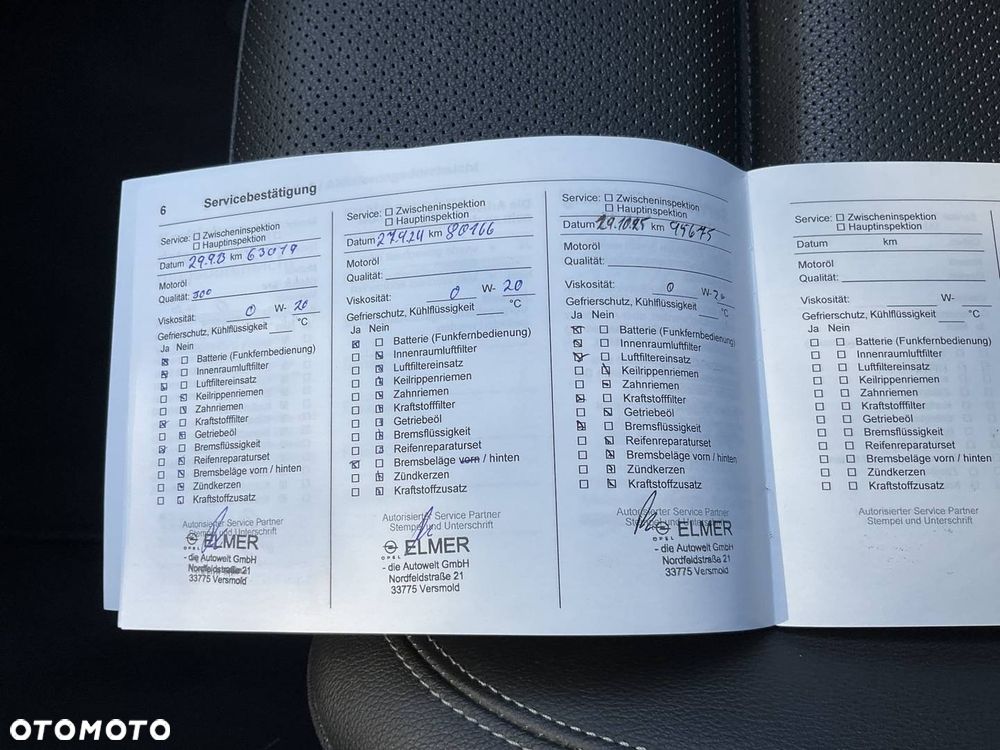 6 Servicebestätigung
Service: ☐ Zwischeninspektion
☐ Hauptinspektion
Datum 29.9.23 km 63019
Motoröl
Qualität: 300
Viskosität: 0 W- 20
Gefrierschutz, Kühlflüssigkeit °C
Ja Nein
Batterie (Funkfernbedienung)
Innenraumluftfilter
Luftfiltereinsatz
Keilrippenriemen
Zahnriemen
Kraftstofffilter
Getriebeöl
Bremsflüssigkeit
Reifenreparaturset
Bremsbeläge vorn / hinten
Zündkerzen
Kraftstoffzusatz
Autorisierter Service Partner
Stempel und Unterschrift
OPEL ELMER
- die Autowelt GmbH
Nordfeldstraße 21
33775 Versmold
Service: ☐ Zwischeninspektion
☐ Hauptinspektion
Datum 27.9.24 km 80166
Motoröl
Qualität:
Viskosität: 0 W- 20
Gefrierschutz, Kühlflüssigkeit °C
Ja Nein
Batterie (Funkfernbedienung)
Innenraumluftfilter
Luftfiltereinsatz
Keilrippenriemen
Zahnriemen
Kraftstofffilter
Getriebeöl
Bremsflüssigkeit
Reifenreparaturset
Bremsbeläge vorn / hinten
Zündkerzen
Kraftstoffzusatz
Autorisierter Service Partner
Stempel und Unterschrift
OPEL ELMER
- die Autowelt GmbH
Nordfeldstraße 21
33775 Versmold
Service: ☐ Zwischeninspektion
☐ Hauptinspektion
Datum 29.10.25 km 99675
Motoröl
Qualität:
Viskosität: 0 W- 20
Gefrierschutz, Kühlflüssigkeit °C
Ja Nein
Batterie (Funkfernbedienung)
Innenraumluftfilter
Luftfiltereinsatz
Keilrippenriemen
Zahnriemen
Kraftstofffilter
Getriebeöl
Bremsflüssigkeit
Reifenreparaturset
Bremsbeläge vorn / hinten
Zündkerzen
Kraftstoffzusatz
Autorisierter Service Partner
Stempel und Unterschrift
OPEL ELMER
- die Autowelt GmbH
Nordfeldstraße 21
33775 Versmold
Service: ☐ Zwischeninspektion
☐ Hauptinspektion
Datum km
Motoröl
Qualität:
Viskosität: W-
Gefrierschutz, Kühlflüssigkeit °C
Ja Nein
Batterie (Funkfernbedienung)
Innenraumluftfilter
Luftfiltereinsatz
Keilrippenriemen
Zahnriemen
Kraftstofffilter
Getriebeöl
Bremsflüssigkeit
Reifenreparaturset
Bremsbeläge vorn / hinten
Zündkerzen
Kraftstoffzusatz
Autorisierter Service Partner
Stempel und Unterschrift
OTOMOTO